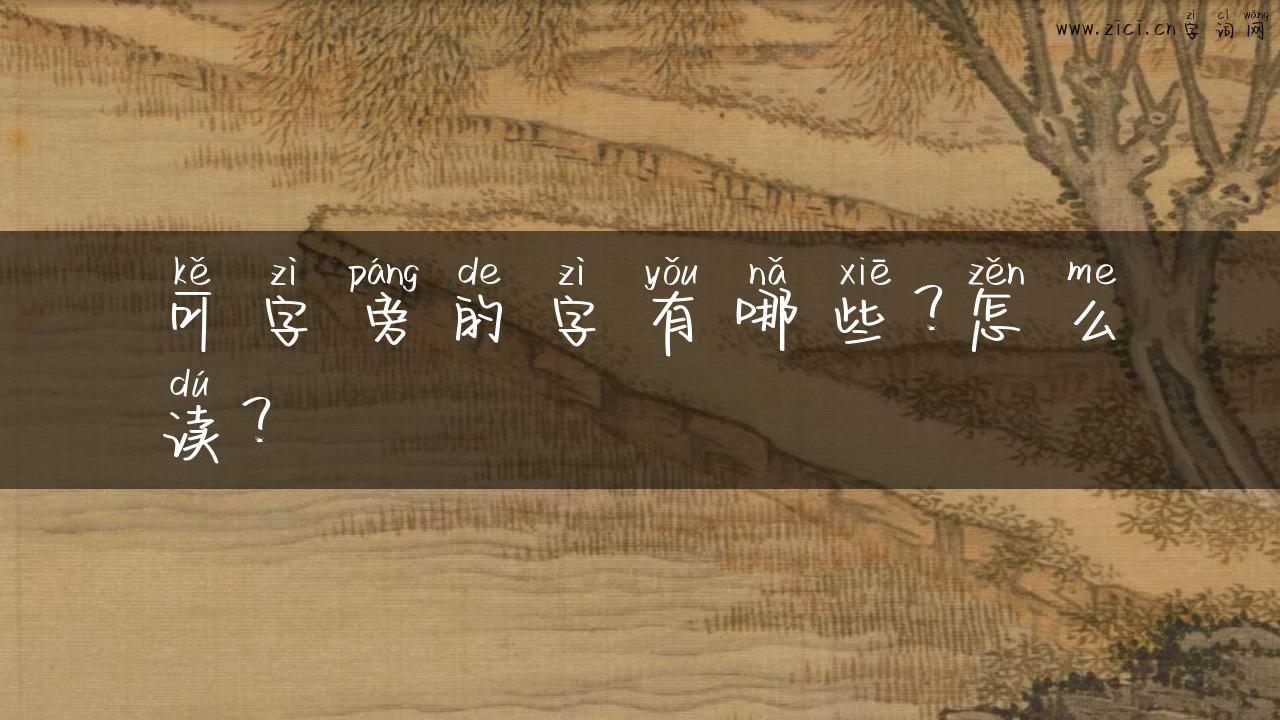 zì cí wǎng
www.zici.cn字词网
kě zì páng de zì yǒu nǎ xiē zěn me
可字旁的字有哪些？怎么
dú
读？